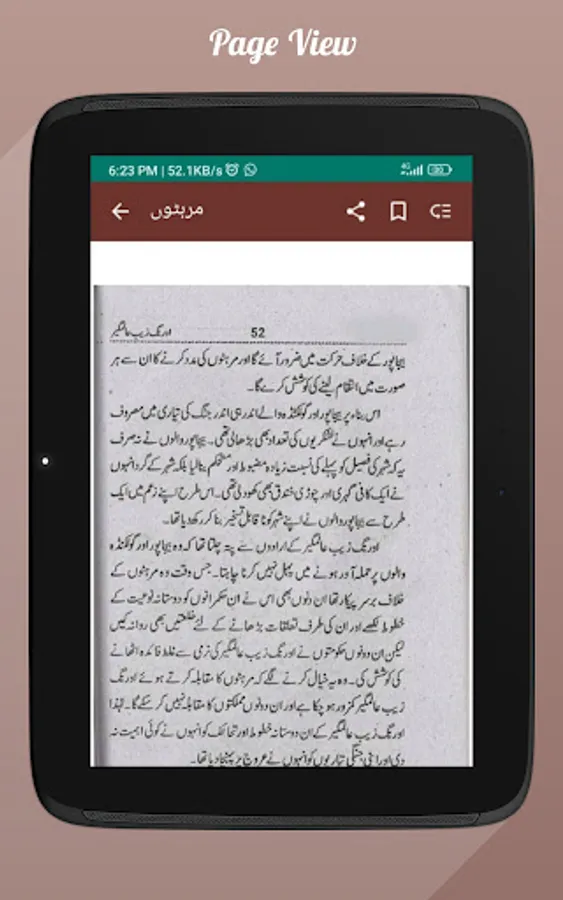 Page View
6:23 PM | 52.1KB/s
4G
مرہٹوں
52
اورنگ زیب عالمگیر
بیجاپور کے خلاف حرکت میں ضرور آئے گا اور مرہٹوں کی مدد کرنے کا ان سے ہر
صورت میں انتقام لینے کی کوشش کرے گا۔
اس بناء پر بیجاپور اور گولکنڈہ والے اندر ہی اندر جنگ کی تیاری میں مصروف
رہے اور انہوں نے لشکریوں کی تعداد بھی بڑھا لی تھی۔ بیجاپور والوں نے نہ صرف
یہ کہ شہر کی فصیل کو پہلے کی نسبت زیادہ مضبوط اور مستحکم بنا لیا بلکہ شہر کے گرد انہوں
نے ایک کافی گہری اور چوڑی خندق بھی کھود لی تھی۔ اس طرح اپنے زعم میں ایک
طرح سے بیجاپور والوں نے اپنے شہر کو ناقابل تسخیر بنا کر رکھ دیا تھا۔
اورنگ زیب عالمگیر کے ارادوں سے پتہ چلتا تھا کہ وہ بیجاپور اور گولکنڈہ
والوں پر حملہ آور ہونے میں پہل نہیں کرنا چاہتا۔ جس وقت وہ مرہٹوں کے
خلاف برسر پیکار تھا ان دنوں بھی اس نے ان حکمرانوں کو دوستانہ نوعیت کے
خطوط لکھے اور ان کی طرف تعلقات بڑھانے کے لئے خلعتیں بھی روانہ کیں
لیکن ان دونوں حکومتوں نے اورنگ زیب عالمگیر کی نرمی سے غلط فائدہ اٹھانے
کی کوشش کی۔ وہ یہ خیال کرنے لگے کہ مرہٹوں کا مقابلہ کرتے ہوئے اورنگ
زیب عالمگیر کمزور ہو چکا ہے اور ان دونوں مملکتوں کا مقابلہ نہیں کر سکے گا۔ لہٰذا
اورنگ زیب عالمگیر کے ان دوستانہ خطوط اور تحائف کو انہوں نے کوئی اہمیت نہ
دی اور اپنی جنگی تیاریوں کو انہوں نے عروج پر پہنچا دیا تھا۔